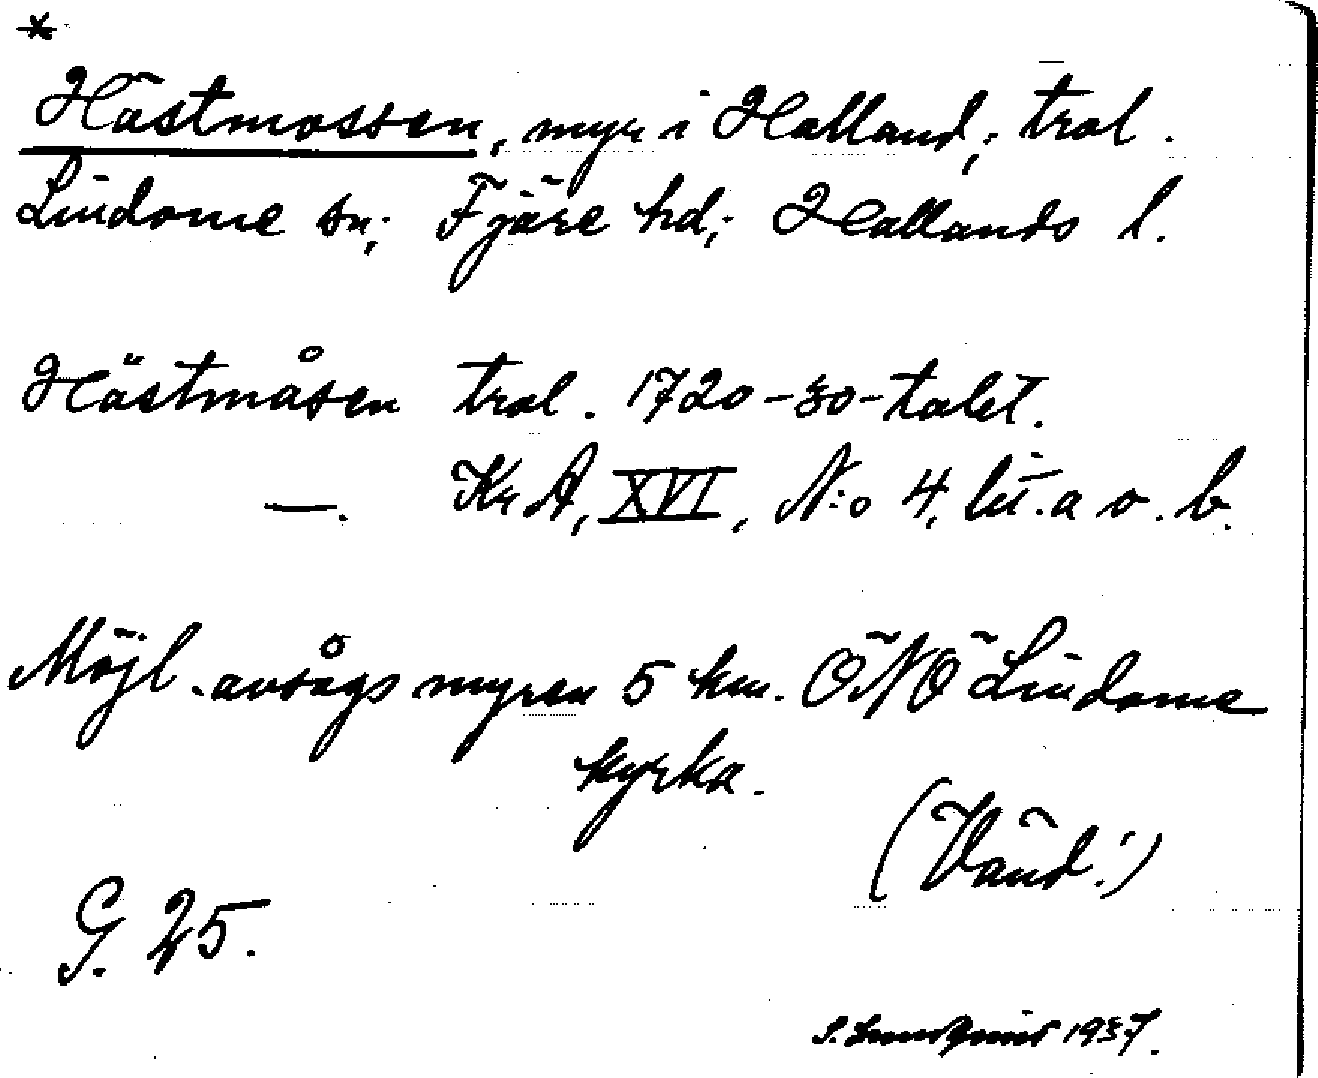 Hästmossen, myr i Halland; trol.
Lindome sn; Fjäre hd; Hallands l.
Hästmåsen trol. 1720-30-talet.
—. KrA, XVI, N:o 4, lit. a o. b.
Möjl. avsågs myren 5 km. ÖNÖ Lindome
kyrka.
(Vänd!)
G. 25.
S. Lundquist 1937.